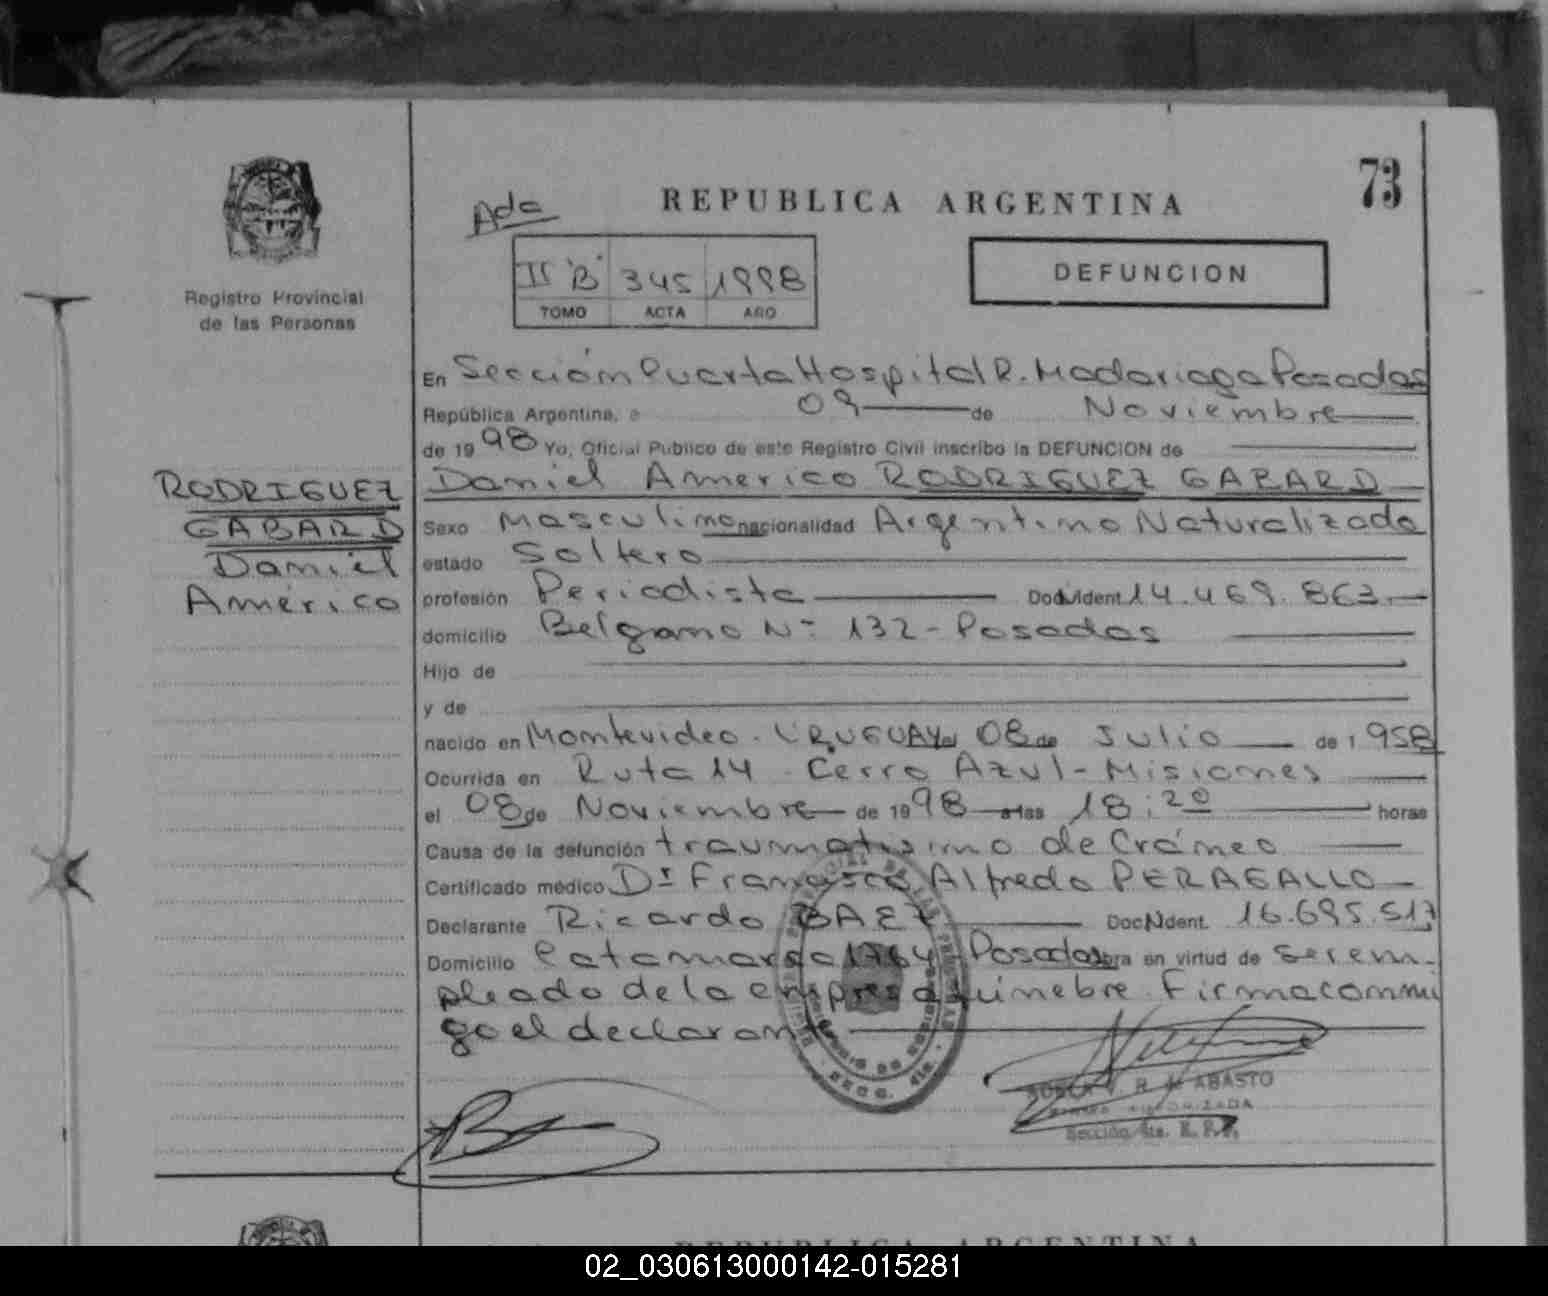 73
REPUBLICA ARGENTINA
Ada
II "B" 345 1998
TOMO ACTA AÑO
DEFUNCION
Registro Provincial
de las Personas
En Sección Cuarta Hospital R. Madariaga Posadas
República Argentina, a 09 de Noviembre
de 1998 Yo, Oficial Publico de este Registro Civil inscribo la DEFUNCION de
Daniel Americo RODRIGUEZ GABARD
RODRIGUEZ
GABARD
Daniel
Américo
Sexo Masculino nacionalidad Argentino Naturalizado
estado Soltero
profesión Periodista Doc. Ident. 14.469.863
domicilio Belgrano Nº 132 - Posadas
Hijo de
y de
nacido en Montevideo. URUGUAY el 08 de Julio de 1958
Ocurrida en Ruta 14 - Cerro Azul - Misiones
el 08 de Noviembre de 1998 a las 18:20 horas
Causa de la defunción traumatisimo de Cráneo
Certificado médico Dr Francisco Alfredo PERAGALLO
Declarante Ricardo BAEZ Doc. Ident. 16.695.517
Domicilio Catamarca 1764 - Posadas obra en virtud de ser em-
pleado de la empresa fúnebre. Firma conmi
go el declarante
ABASTO
AUTORIZADA
Sección 4ta. R. P. P.
REPUBLICA ARGENTINA
02_030613000142-015281